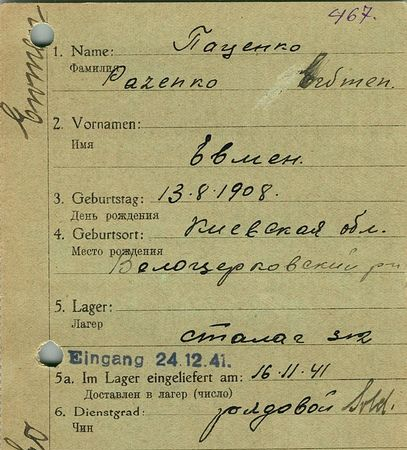 467.
1. Name: Паценко
Фамилия
Раченко
2. Vornamen:
Имя
Евмен.
3. Geburtstag: 13.8.1908.
День рождения
4. Geburtsort: Киевская обл.
Место рождения
Белоцерковский р-н
5. Lager:
Лагерь
сталаг 312
Eingang 24.12.41.
5a. Im Lager eingeliefert am: 16.11.41
Доставлен в лагерь (число)
6. Dienstgrad: рядовой Sold.
Чин